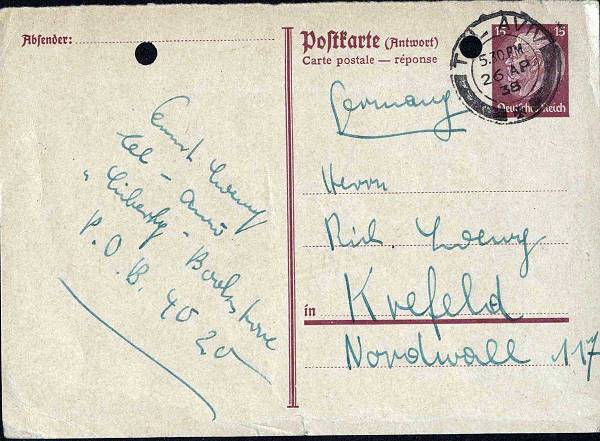 Absender:
Ernst Loewy
tel-aviv
"Liberty"-Bookstore
P.O.B. 4020
Postkarte (Antwort)
Carte postale — réponse
TEL AVIV
5.30 PM
26 AP
38
2
15 15
Deutsches Reich
Germany
Herrn
Rich. Loewy
in Krefeld
Nordwall 117